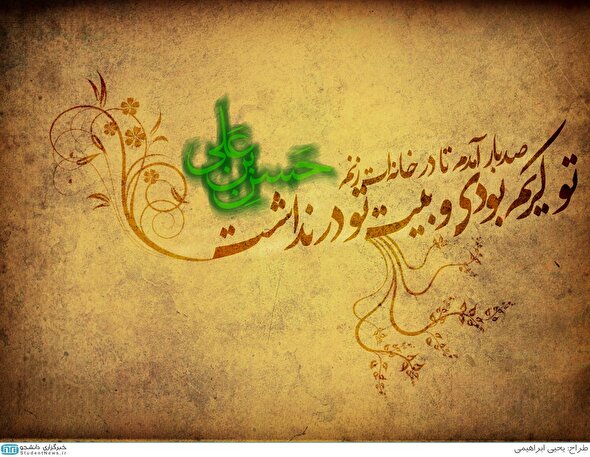 صد بار آمدم تا در خانه‌ات زنم
تو کریم بودی و بیت تو در نداشت
حسن بن علی
طراح: یحیی ابراهیمی
خبرگزاری دانشجو
StudentNews.ir